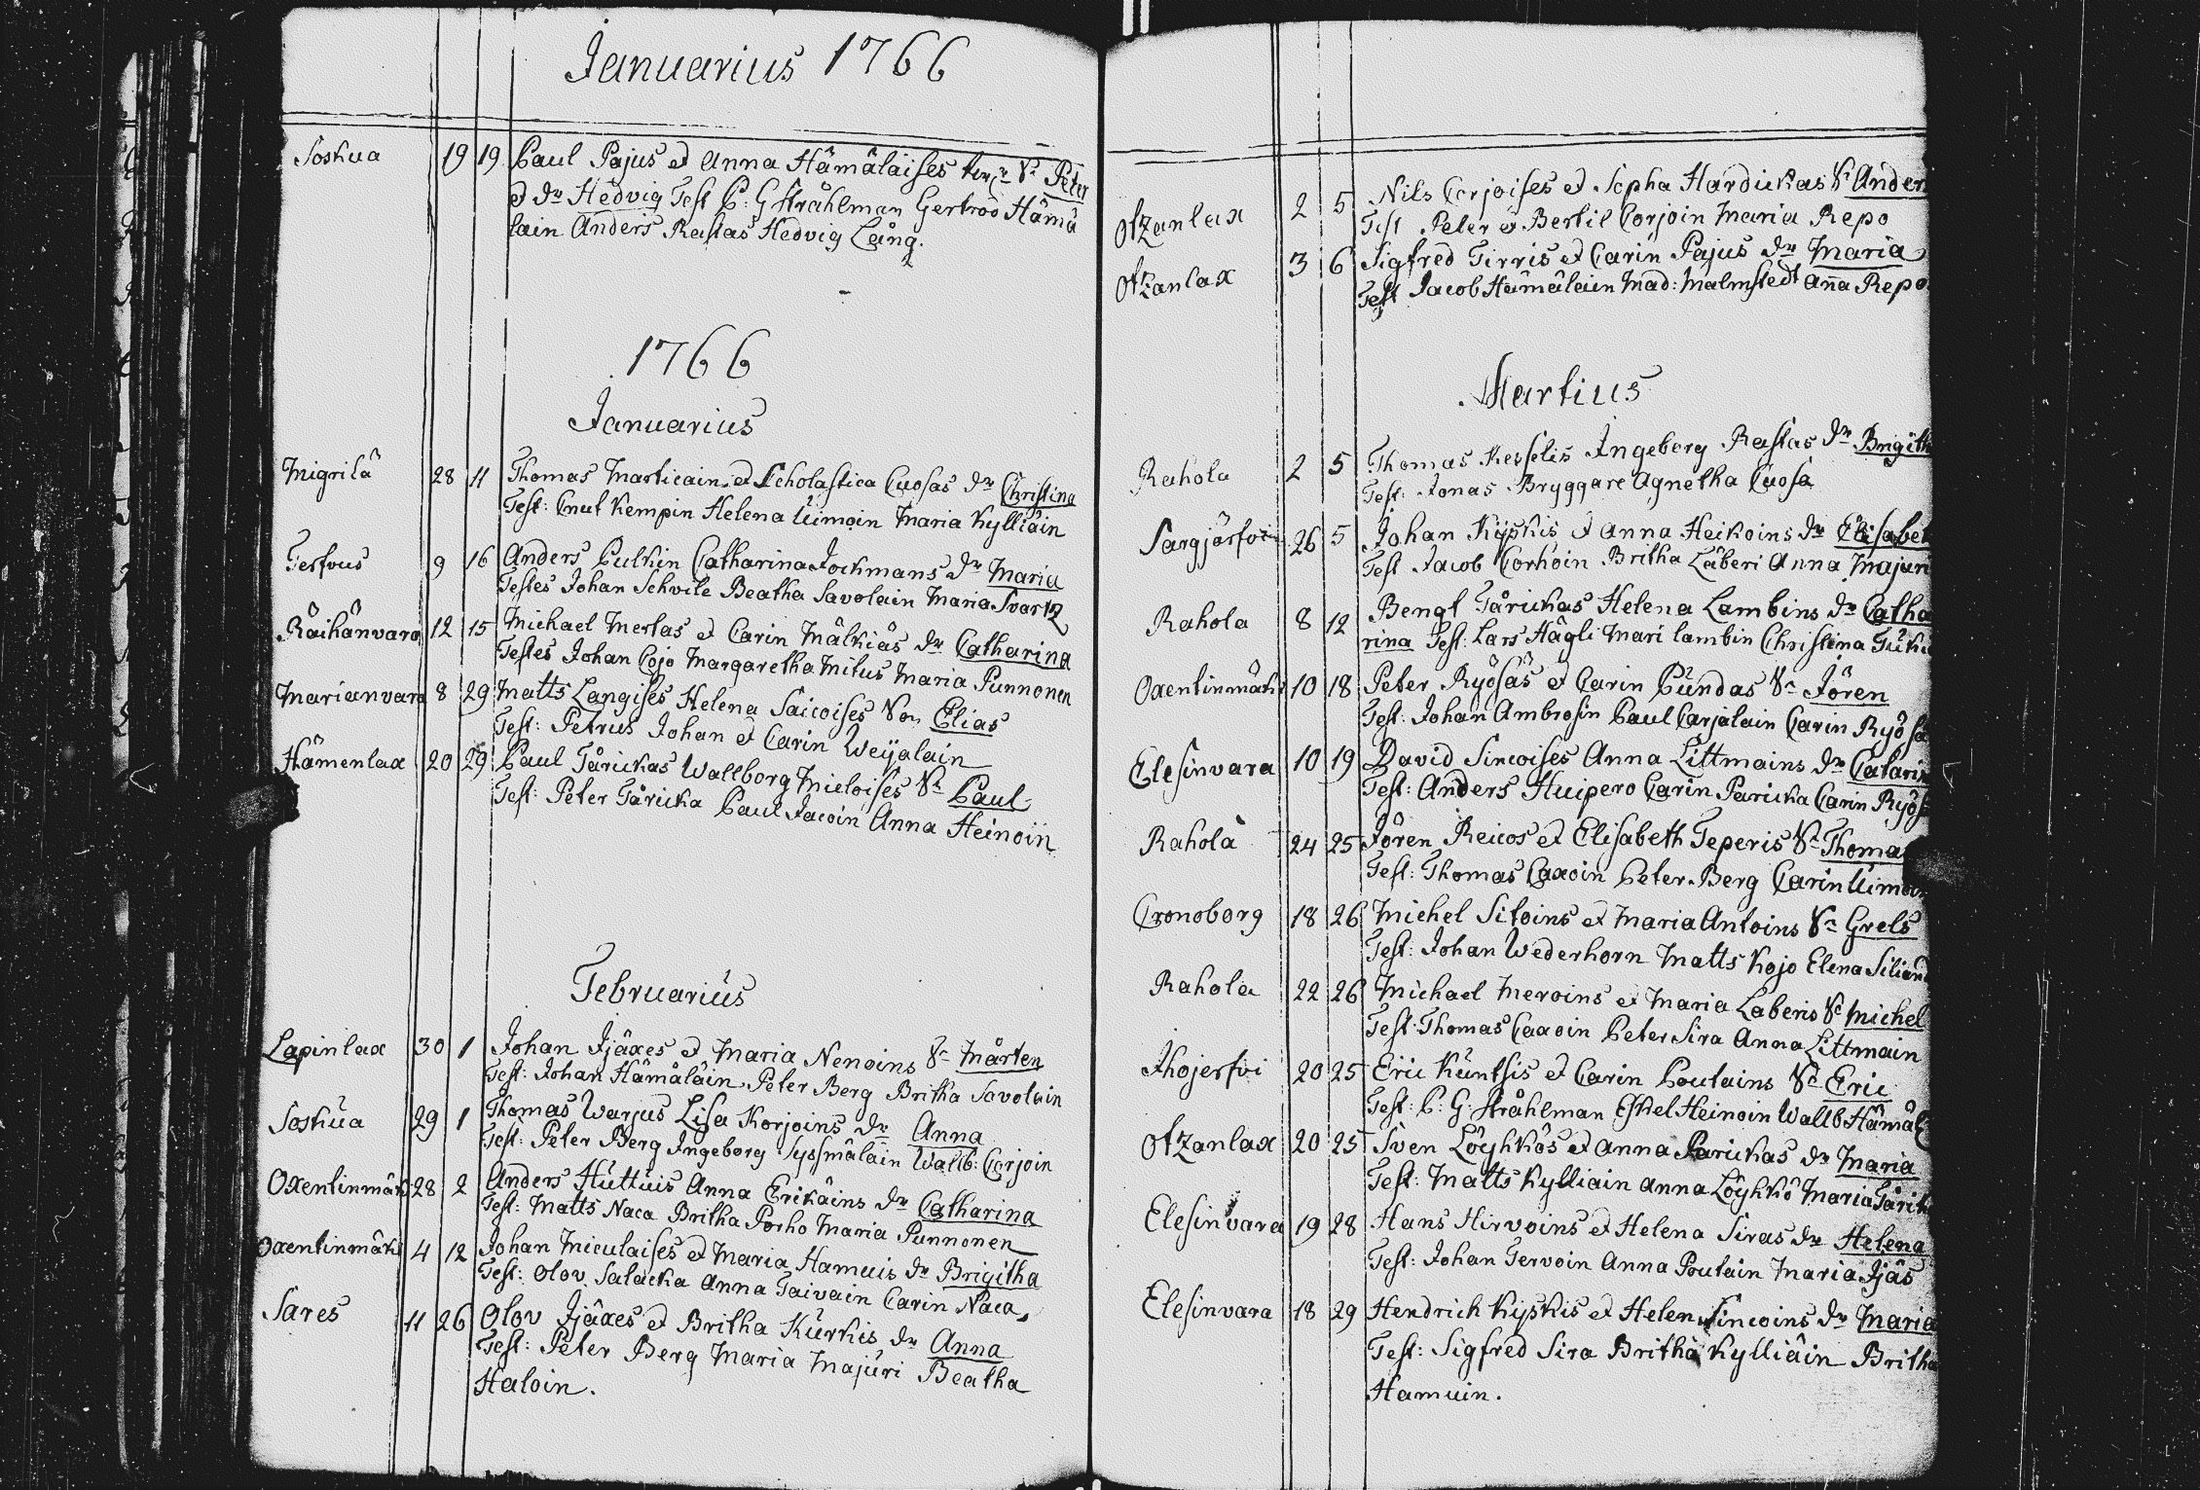 Januarius 1766
Soskua 19 19 Paul Pajus et Anna Hämäläises Sr Peter
et dr Hedvig Test P: G Stråhlman Gertrod Hämä
lain Anders Rastas Hedvig Lång.
1766
Januarius
Migrilä 28 11 Thomas Marticain et Scholastica Cuosas dr Christina
Test: Cnut Kempin Helena Uimoin Maria Kylliäin
Tervus 9 16 Anders Pulkin Catharina Jockmans dr Maria
Testes Johan Schvile Beatha Savolain Maria Svartz
Räihänvara 12 15 Michael Mertas et Carin Mälkiäs dr Catharina
Testes Johan Cojo Margaretha Mitus Maria Punnonen
Marianvara 8 29 Matts Langises Helena Saicoises Son Elias
Test: Petrus Johan et Carin Weijalain
Hämenlax 20 29 Paul Tårickas Wallborg Mieloises Sr Paul
Test: Peter Tåricka Paul Jacoin Anna Heinoin
Februarius
Lapinlax 30 1 Johan Ijäxes et Maria Nenoins Sr Mårten
Test: Johan Hämäläin Peter Berg Britha Savolain
Soskua 29 1 Thomas Warjus Lisa Korjoins dr Anna
Test: Peter Berg Ingeborg Syssmäläin Wallb: Corjoin
Oxentinmäki 28 2 Anders Hüttüis Anna Erikäins dr Catharina
Test: Matts Naca Britha Porho Maria Punnonen
Oxentinmäki 4 12 Johan Miculaises et Maria Hamuis dr Brigitha
Test: Olov Salacka Anna Taivain Carin Naca
Sares 11 26 Olov Ijäxes et Britha Kürkis dr Anna
Test: Peter Berg Maria Majuri Beatha
Haloin.
Otzanlax 2 5 Nils Corjoises et Sopha Hardickas Sr Anders
Test Peter et Bertil Corjoin Maria Repo
Otzanlax 3 6 Sigfred Tirris et Carin Pajus dr Maria
Test Jacob Hämäläin Mad: Malmstedt Anna Repo.
Martius
Rahola 2 5 Thomas Kesselis Ingeborg Rastas dr Brigitha
Test: Jonas Bryggare Agnetha Cuosa
Sargjärfvi 26 5 Johan Kypkis et Anna Heikoins dr Elisabet
Test Jacob Corhoin Britha Läberi Anna Majuri
Rahola 8 12 Bengt Tårickas Helena Lambins dr Catha
rina Test: Lars Hägli Mari lambin Christina
Oxentinmäki 10 18 Peter Ryösäs et Carin Pündas Sr Jören
Test: Johan Ambrosin Paul Carjalain Carin Ryösä
Elesinvara 10 19 David Sincoises Anna Littmains dr Catarin
Test: Anders Huipero Carin Paricka Carin Ryösä
Rahola 24 25 Jören Reicos et Elisabeth Teperis Sr Thomas
Test: Thomas Caxoin Peter Berg Carin Uimoin
Cronoborg 18 26 Michel Sitoins et Maria Antoins Sr Grels
Test: Johan Wederhorn Matts Kojo Elena Siliand
Rahola 22 26 Michael Meroins et Maria Laberis Sr Michel
Test: Thomas Caxoin Peter Sira Anna Littmain
Ihojerfvi 20 25 Eric Küntsis et Carin Poutains Sr Eric
Test: P: G: Stråhlman Eskel Heinoin Wallb Hämäl
Otzanlax 20 25 Sven Löyhkös et Anna Parickas dr Maria
Test: Matts Kylliain Anna Löyhkö Maria Tårick
Elesinvara 19 28 Hans Hirvoins et Helena Siras dr Helena
Test: Johan Tervoin Anna Poutain Maria Ijäs
Elesinvara 18 29 Hendrich Kypkis et Helena Sincoins dr Maria
Test: Sigfred Sira Britha Kylliäin Britha
Hamuin.